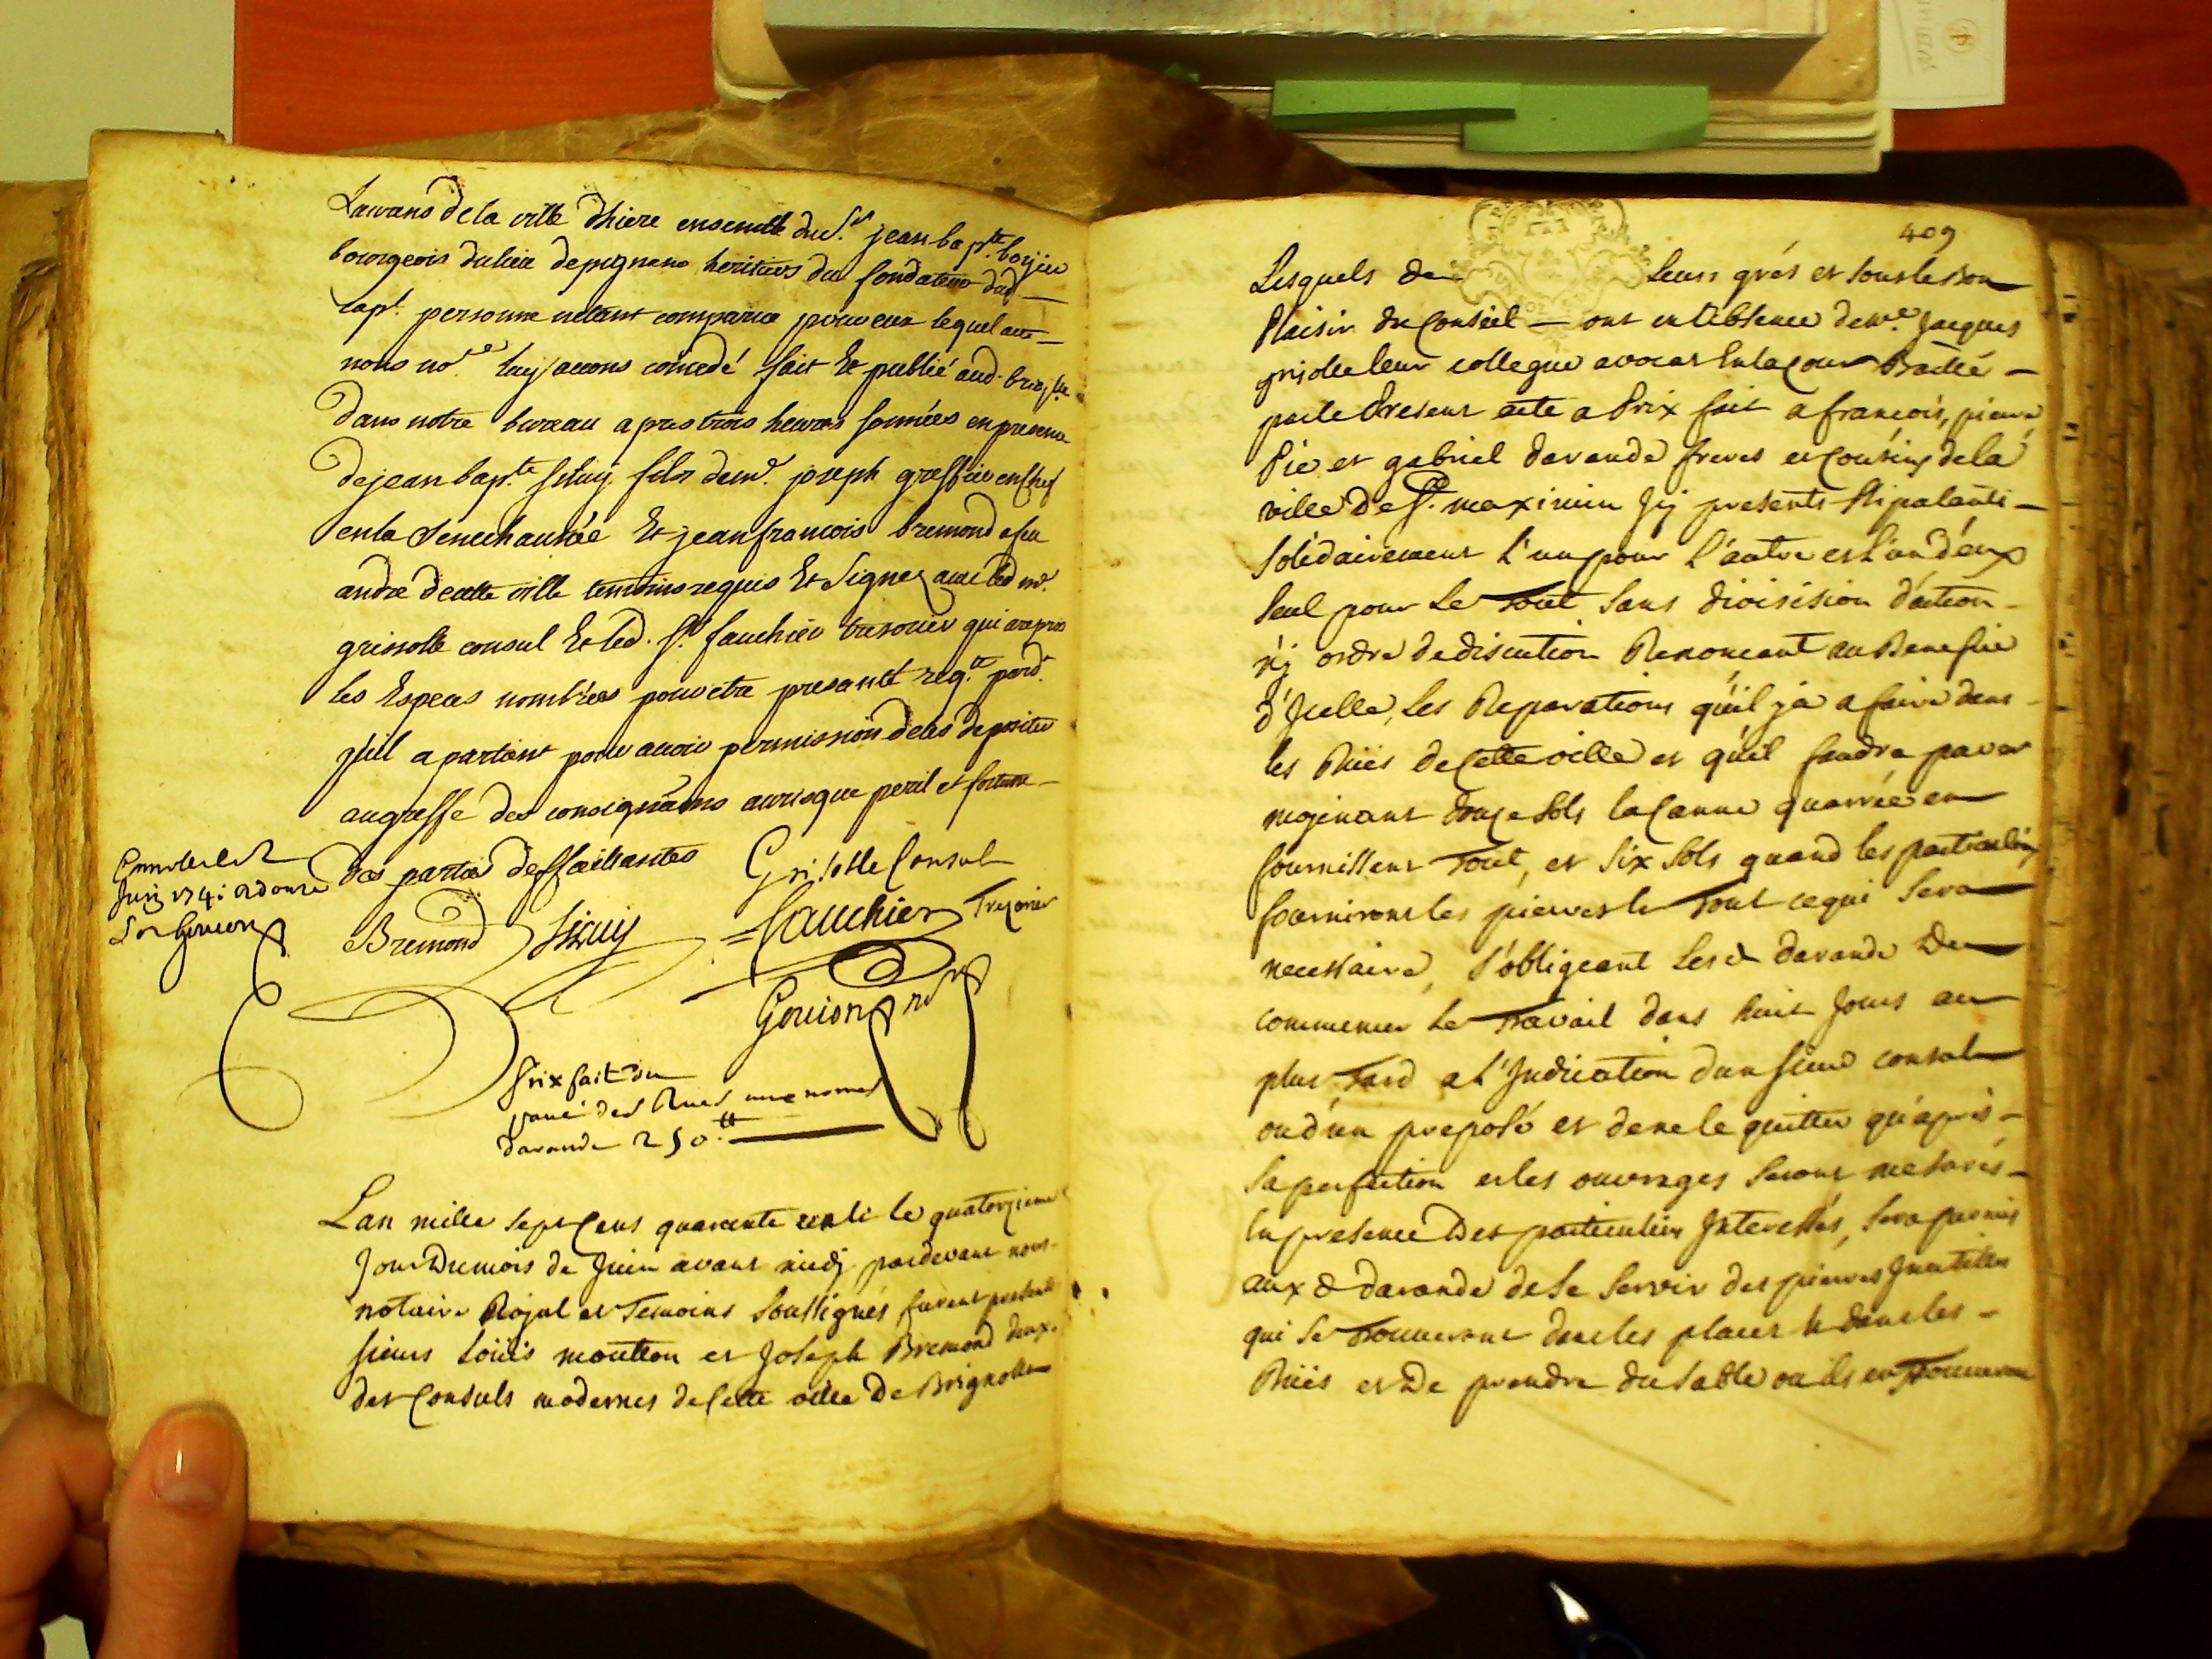 de la ville dhiere ensemble du sr. jean bapte. boyer
bourgeois du lieu de pignans heritiers du fondateur dud
capl. personne netant comparue pour eux lequel acte
nous nore. luy avons concedé fait et publié aud. brig.lle
dans notre bureau apres trois heures sonnées en presence
de jean bapte. fils de me. joseph greffier en chef
en la Senechaussée Et jean francois bremond a feu
andré de cette ville temoins requis Et Signez avec led me.
grisolle consul Et led. sr. fauchier tresorier qui a repris
les Especes nombrées pour etre presanté reqte. pard.
qu'il apartient pour avoir permission de les depositer
au greffe des consignations au risque peril et fortune
des parties deffaillantes
Grisolle Consul
Controlle le
Juin 174: R douze
s. Gouion
Bremond
fauchier Trezorier
Gouion nre
Prix fait du
pavé des Rues aux nomes
davande 250.tt
Lan mille sept cens quarante le quatorzieme
Jour Du mois de Juin avant midy pardevant nous
notaire Royal et Temoins Soussignés furent presents
sieurs Loüis moutton et Joseph Bremond deux
des Consuls modernes de Cette ville De Brignolle
409
Lesquels de Leurs grés et sous le bon
Plaisir du Conseil ont en l'absence de me. Jacques
grisolle leur collegue avocat En la Cour Baillé
par le Present acte a Prix fait a francois, pierre
Pié et gabriel davande freres et Cousins de la
ville de St. maximin Icy presents Stipulants
Solidairement l'un pour l'autre et l'un d'eux
seul pour Le Tout sans divisision d'action
n'y ordre de discution Renonçant au Benefice
d'Icelle, Les Reparations qu'il ja a faire dans
les Rües de Cette ville et qu'il faudra paver
mojenant douze sols la Canne quarrée en
fournissent Tout, et six sols quand les particuliers
fourniront les pierres le Tout ce qui Sera
necessaire, s'obligeant Lesd davande De
commencer Le Travail dans huit Jours au
plus Tard a L'Indication d'un sieur consul
ou d'un preposé et de ne le quitter qu'après
sa perfection et les ouvrages seront mesurés
En presence Des particuliers Interessés, Sera permis
aux d davande de se servir des pierres Inutilles
qui se Trouveront dans les places & dans les
Rües et De prendre du sable ou ils en Trouveront